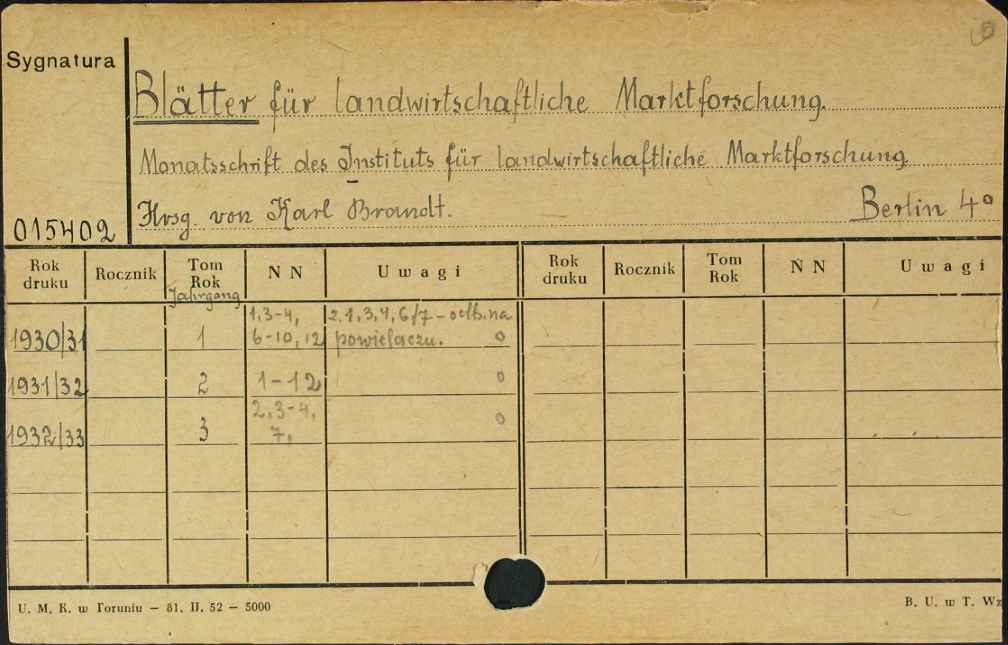 Sygnatura
Blätter für landwirtschaftliche Marktforschung.
Monatsschrift des Instituts für landwirtschaftliche Marktforschung.
015402 Hrsg. von Karl Brandt. Berlin 4°
Rok druku Rocznik Tom Rok Jahrgang N N Uwagi Rok druku Rocznik Tom Rok N N Uwagi
1930/31 1 1,3-4, 6-10,12 2.1,3,4,6/7 - odb. na powielaczu. o
1931/32 2 1-12 o
1932/33 3 2,3-4, 7, o
U. M. K. w Toruniu — 81. II. 52 — 5000 B. U. w T. Wz